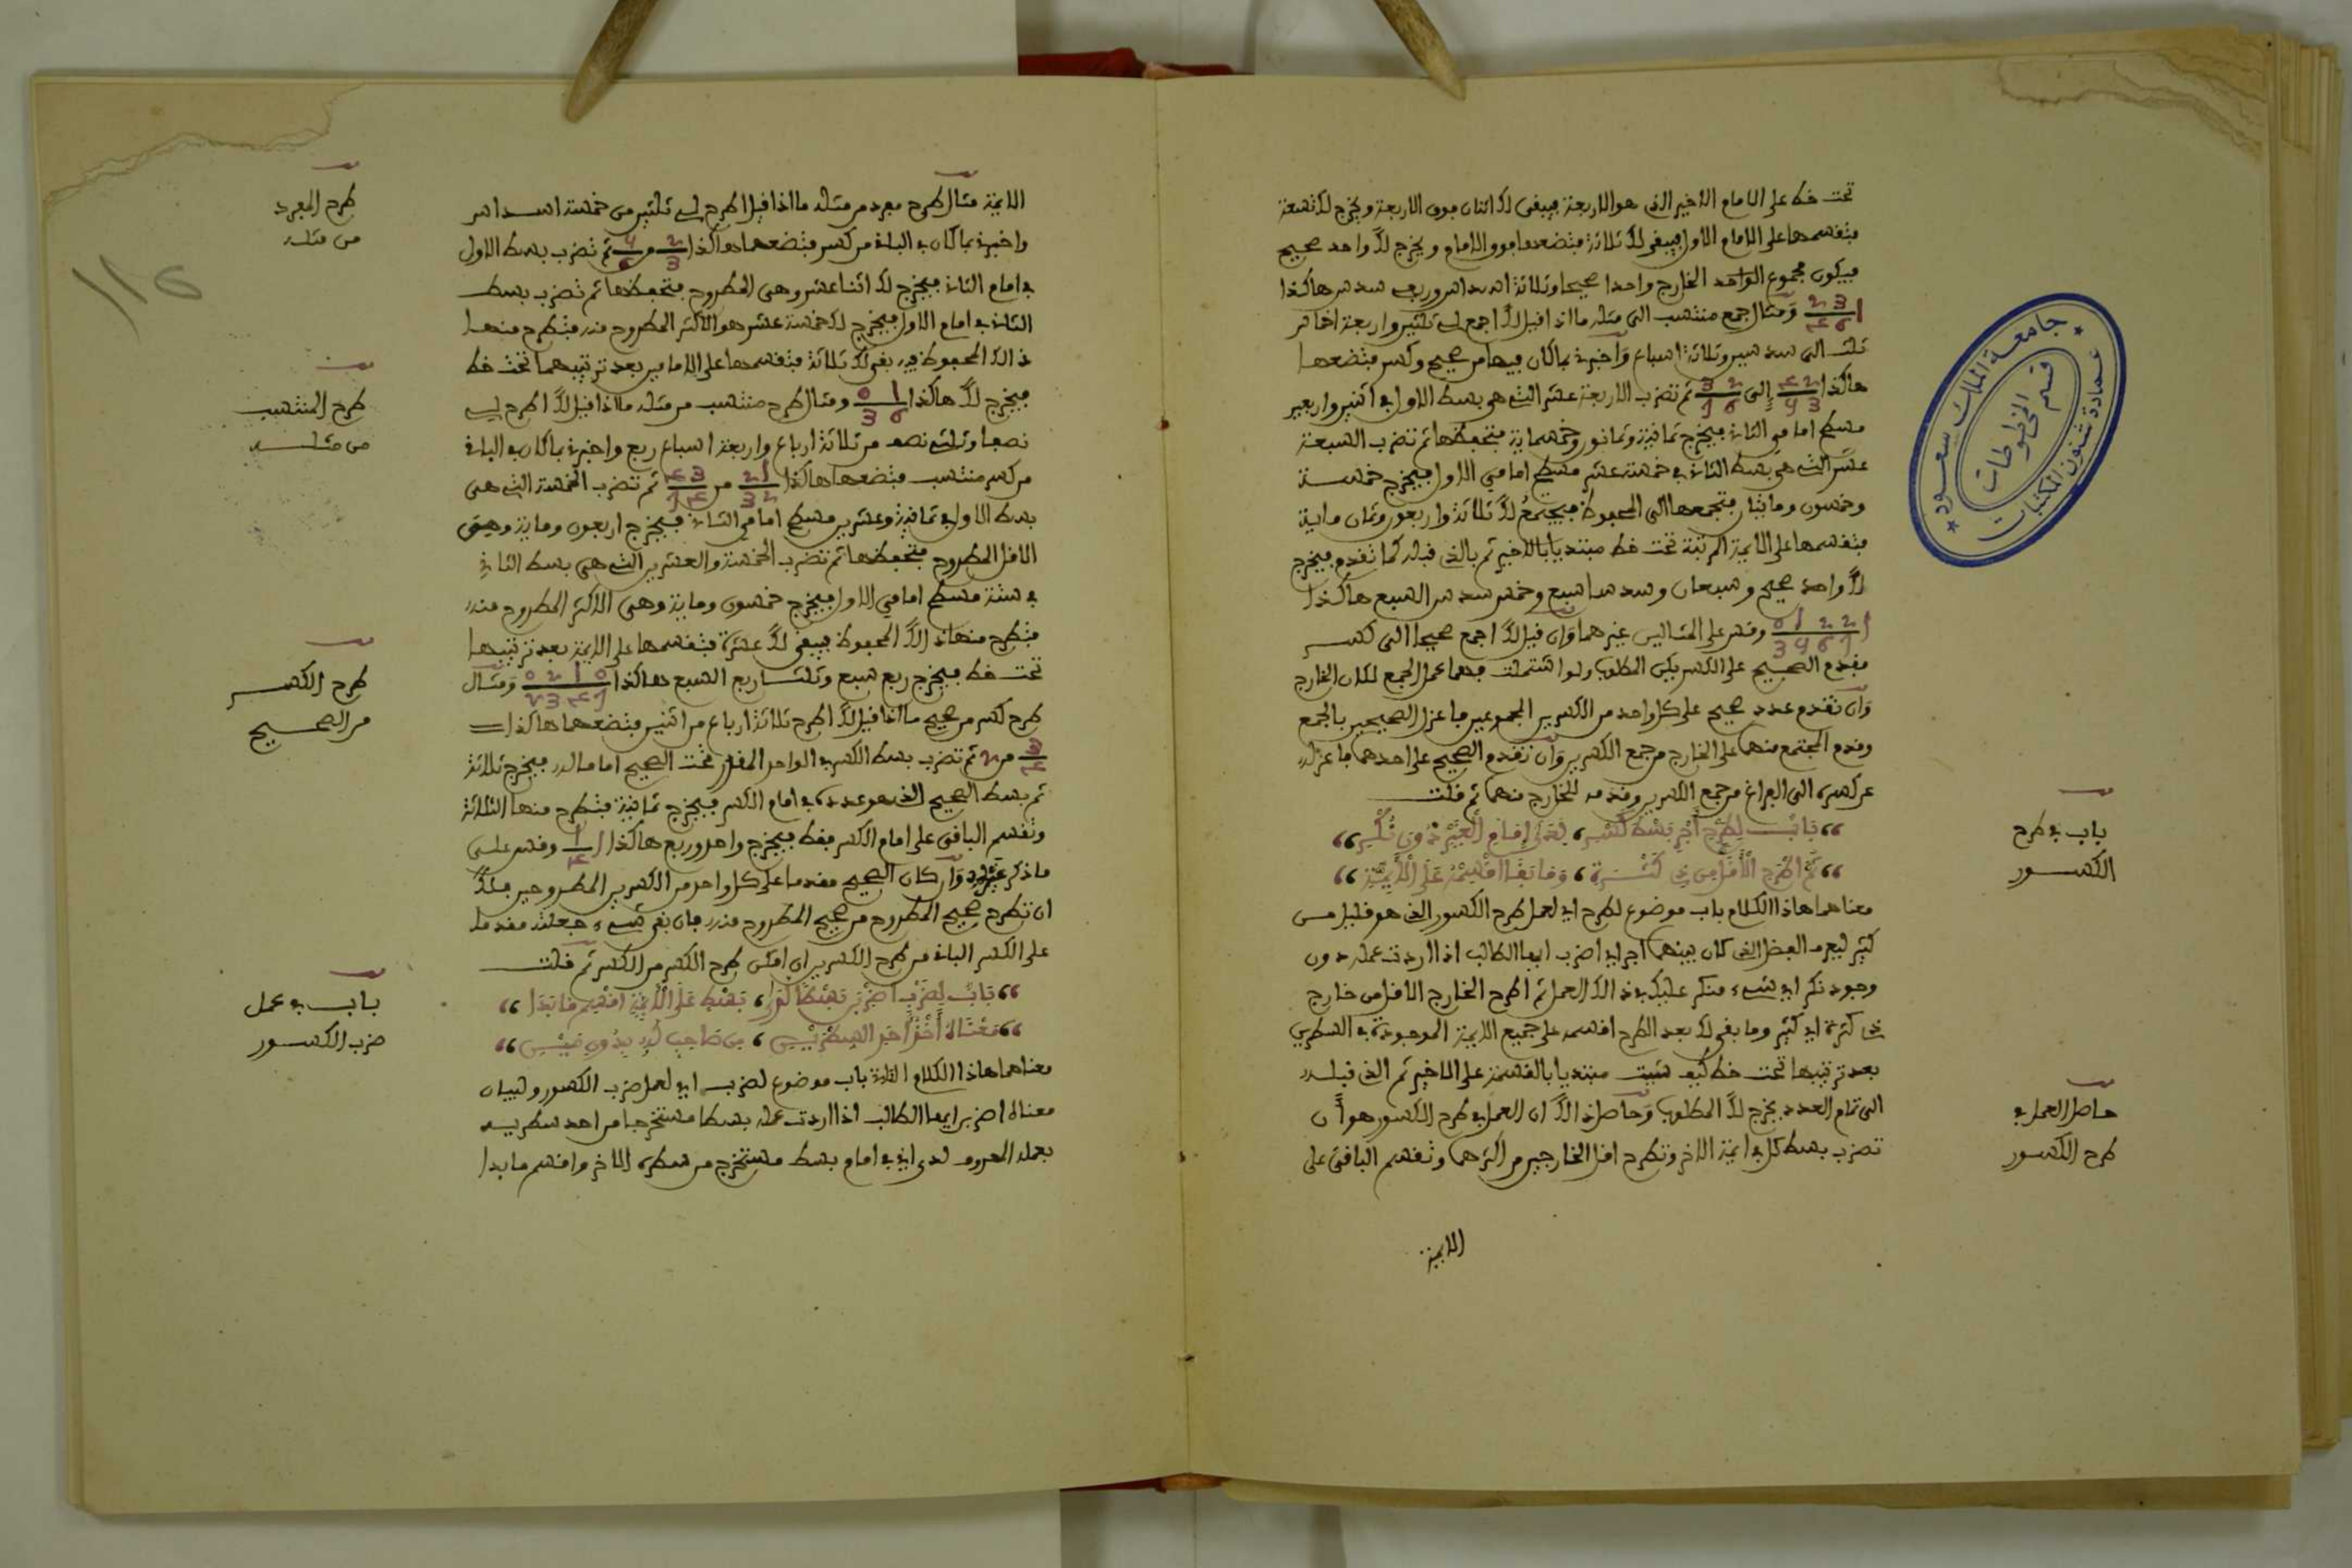 تحت خط على الامام الاخير الذى هو الاربعة فيبقى لك اثنان فوق الاربعة ويخرج لك تسعة
فتقسمها على الامام الاول فيبقى لك ثلاثة فتضعها فوق الامام ويخرج لك واحد صحيح
فيكون مجموع الواحد الخارج واحدا صحيحا وثلاثة اسداس وربعى سدس هاكذا
ومثال جمع منتسب الى مثله ما اذا قيل لك اجمع لى ثلثين واربعة اخماس
ثلث الى سدسين وثلاثة اسباع واخبرنى بما كان فيها من صحيح وكسر فتضعها
هاكذا الى ثم تضرب الاربعة عشر التى هى بسط الاول فى اثنين واربعين
مسطح امامى الثانى فيخرج ثمانية وثمانون وخمسماية فتحفظها ثم تضرب السبعة
عشر التى هى بسط الثانى فى خمسة عشر مسطح امامى الاول فيخرج خمسة
وخمسون ومايتان فتجمعها الى المحفوظ فيجتمع لك ثلاثة واربعون وثمان ماية
فتقسمها على الايمة المرتبة تحت خط مبتديا بالاخير ثم بالذى قبله كما تقدم فيخرج
لك واحد صحيح وسبعان وسدسا سبع وخمس سدس السبع هاكذا
وقس على المثالين غيرهما وان قيل لك اجمع صحيحا الى كسر
فقدم الصحيح على الكسر يكن المطلوب ولو اشتملت فهما عمل الجمع لكان الخارج
وان تقدم عدد صحيح على كل واحد من الكسرين المجموعين فاعزل الصحيحين بالجمع
وقدم المجتمع منهما على الخارج من جمع الكسرين وان تقدم الصحيح على احدهما فاعزله
عن كسره الى الفراغ من جمع الكسرين وقدمه للخارج منهما ثم قلت
باب لطرح اجر بسط كسر، لدى امام الغير دون نكر
ثم اطرح الاقل من ذى كثرة، وما بقا اقسمه على الايمة
معناهما هاذا الكلام باب موضوع لطرح اى لعمل طرح الكسور الذى هو قليل من
كثير ليعرف الفضل الذى كان بينهما اجر اى اضرب ايها الطالب اذا اردت عمله دون
وجود نكر اى شىء منكر عليك فى ذالك العمل ثم اطرح الخارج الاقل من خارج
ذى كثرة اى كثير وما بقى لك بعد الطرح اقسمه على جميع الايمة الموجودة فى السطرين
بعد ترتيبها تحت خط كيف شيت مبتديا بالقسمة على الاخير ثم الذى قبله
الى تمام العدد يخرج لك المطلوب وحاصل ذالك ان العمل فى طرح الكسور هو ان
تضرب بسط كل فى ايمة الاخر وتطرح اقل الخارجين من اكثرهما وتقسم الباقى على
الايمة
باب فى طرح
الكسور
حاصل العمل فى
طرح الكسور
جامعة الملك سعود
قسم المخطوطات
عمادة شئون المكتبات
الايمة مثال طرح مفرد من مثله ما اذا قيل اطرح لى ثلثين من خمسة اسداس
واخبرنى بما كان فى الباقى من كسر فتضعهما هاكذا 2/3 من ثم تضرب بسط الاول
فى امام الثانى فيخرج لك اثنا عشر وهى المطروح فتحفظها ثم تضرب بسط
الثانى فى امام الاول فيخرج لك خمسة عشر هو الاكثر المطروح منه فتطرح منها
ذالك المحفوظ يبقى لك ثلاثة فتقسمها على الامامين بعد ترتيبهما تحت خط
فيخرج لك هاكذا ومثال طرح منتسب من مثله ما اذا قيل لك اطرح لى
نصفا وثلثى نصف من ثلاثة ارباع واربعة اسباع ربع واخبرنى بما كان فى الباقى
من كسر منتسب فتضعها هاكذا من ثم تضرب الخمسة التى هى
بسط الاول فى ثمانية وعشرين مسطح امامى الثانى فيخرج اربعون وماية وهى
الاقل المطروح فتحفظها ثم تضرب الخمسة والعشرين التى هى بسط الثانى
فى ستة مسطح امامى الاول فيخرج خمسون وماية وهى الاكثر المطروح منه
فتطرح منها ذالك المحفوظ فيبقى لك عشرة فتقسمها على الايمة بعد ترتيبها
تحت خط فيخرج ربع سبع وثلثا ربع السبع هاكذا ومثال
طرح كسر من صحيح ما اذا قيل لك اطرح ثلاثة ارباع من اثنين فتضعهما هاكذا
من 2 ثم تضرب بسط الكسر فى الواحد المقدر تحت الصحيح اماما له فيخرج ثلاثة
ثم بسط الصحيح الذى هو عدده فى امام الكسر فيخرج ثمانية فتطرح منها الثلاثة
وتقسم الباقى على امام الكسر فقط فيخرج واحد وربع هاكذا وقس على
ما ذكر غيره وان كان الصحيح مقدما على كل واحد من الكسرين المطروحين فلك
ان تطرح صحيح المطروح من صحيح المطروح منه فان بقى شىء جعلته مقدما
على الكسر الباقى من طرح الكسرين ان امكن طرح الكسر من الكسر ثم قلت
باب لضرب اضربن بسطا لدى، بسط على الايمة اقسم ما بدا
معناه اخذ احد السطرين، من صاحب له بدون مين
معناهما هاذا الكلام باب موضوع لضرب اى لعمل ضرب الكسور ولبيان
معناه اضرب ايها الطالب اذا اردت عمله بسطا مستخرجا من احد سطريه
بعمله المعروف لدى اى فى امام بسط مستخرج من سطره الاخر واقسم ما بدا
طرح المفرد
من مثله
طرح المنتسب
من مثله
طرح الكسر
من الصحيح
باب فى عمل
ضرب الكسور